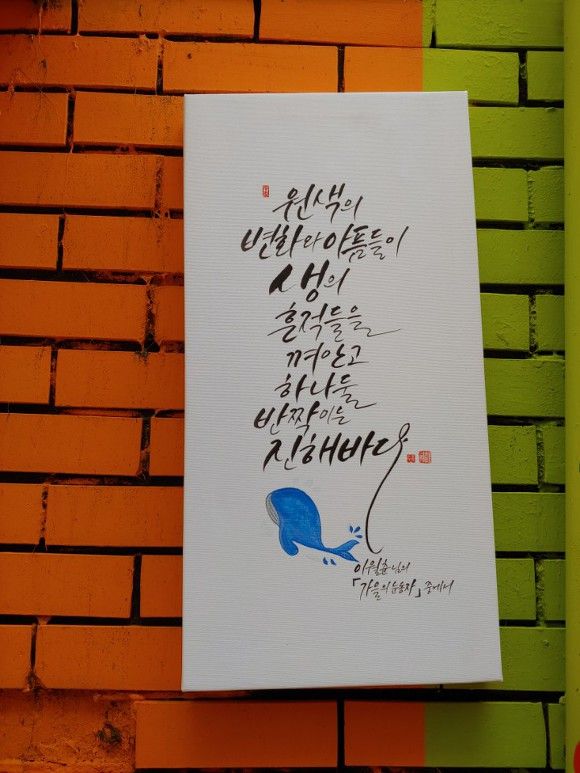 원색의
변화와 아픔들이
생의
흔적들을
껴안고
하나둘
반짝이는
진해바다
이월춘님의
「가을의 눈동자」 중에서